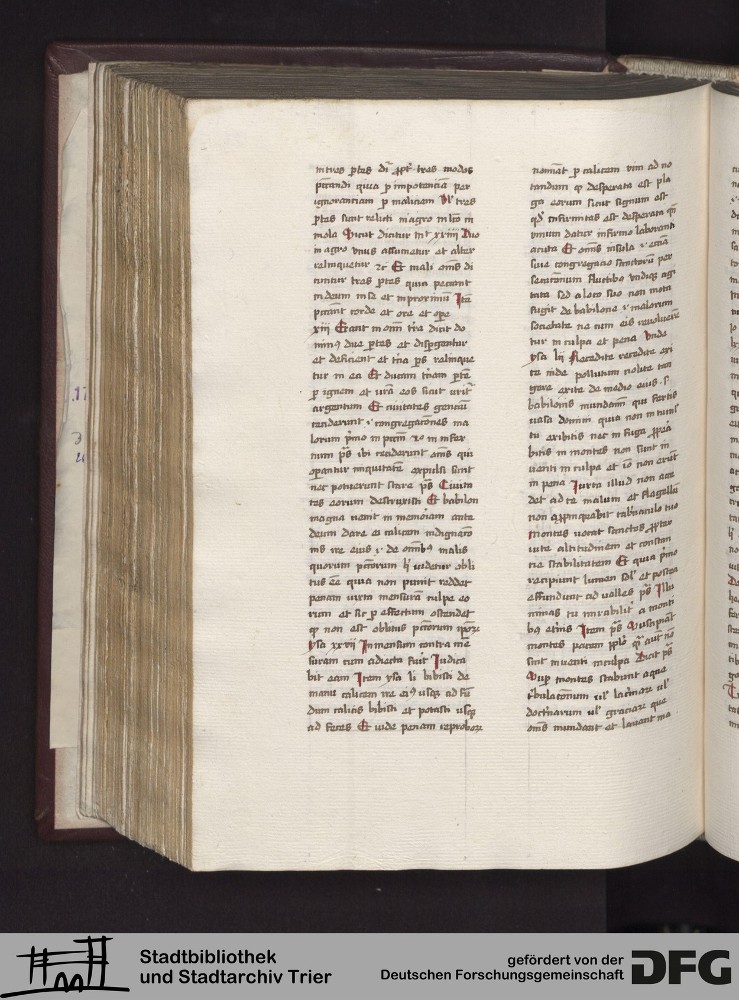 in tres ptes di ppt tres modos
pccandi quia p impotenciam per
ignorantiam p maliciam Vl tres
ptes sunt relicti in agro in lco in
mola Sicut dicitur mt xxiiii Duo
in agro vnus assumetur et alter
relinquetur zc Et mali oms di
cuntur tres ptes quia peccant
in deum in se et in proximum Ite
peccant corde et ore et ope
xiii Erunt in omni tra dicit do
minus due ptes et dispergentur
et deficient et tria ps relinque
tur in ea Et ducam triam pte
p ignem et uram eos sicut urit
argentum Et ciuitates gencium
ceciderunt i congregacones ma
lorum pmo in pccm 2o in infer
num ps ibi ceciderunt oms qui
operantur iniquitatem expulsi sunt
nec potuerunt stare ps Ciuita
tes eorum destruxisti Et babilon
magna uenit in memoriam ante
deum dare ei calicem indignaco
nis ire eius i de omnibus malis
quorum pccorum li uidetur obli
tus ee quia non punit reddet
penam iuxta mensuram culpe eo
rum et sic p effectum ostendet
q non est oblitus pccorum ipor
ysa xxvii In mensuram contra me
suram cum adiecta fuit Judica
bit eam Item ysa li bibisti de
manu calicem ire eius usque ad fu
dum calicis bibisti et potasti usque
ad feces Et uide penam reprobor
nominat p calicem vini ad no
tandum q desperata est pla
ga eorum sicut signum est
qd infirmitas est desperata qn
vinum datur infirmo laboranti
acuta Et omis insula i eccia
siue congregacio sanctorum per
secutonum fluctibus undique agi
tata sed a loco suo non mota
fugit de babilone i malorum
societate ne cum eis reuoluere
tur in culpa et pena Vnde
ysa lii Recedite recedite exi
te inde pollutum nolite tan
gere exite de medio eius s
babilonis mundamini qui fertis
uasa domini quia non in tumul
tu exibitis nec in fuga ppera
bitis in montes non sunt in
uenti in culpa et io non erunt
in pena Iuxta illud non acce
det ad te malum et flagellum
non appinquabit tabnaculo tuo
montes uocat sanctos ppter
uite altitudinem et constan
cie stabilitatem Et quia pmo
recipiunt lumen sol et postea
effundunt ad ualles ps Illu
minas tu mirabilit a monti
bus etnis Item ps Suscipiant
montes pacem pplo qi aut no
sint inuenti in culpa Dicit ps
Sup montes stabunt aque
tbulaconum ul lacrimarum ul
doctrinarum ul graciarum que
oms mundant et lauant ma
Stadtbibliothek
und Stadtarchiv Trier
gefördert von der
Deutschen Forschungsgemeinschaft
DFG